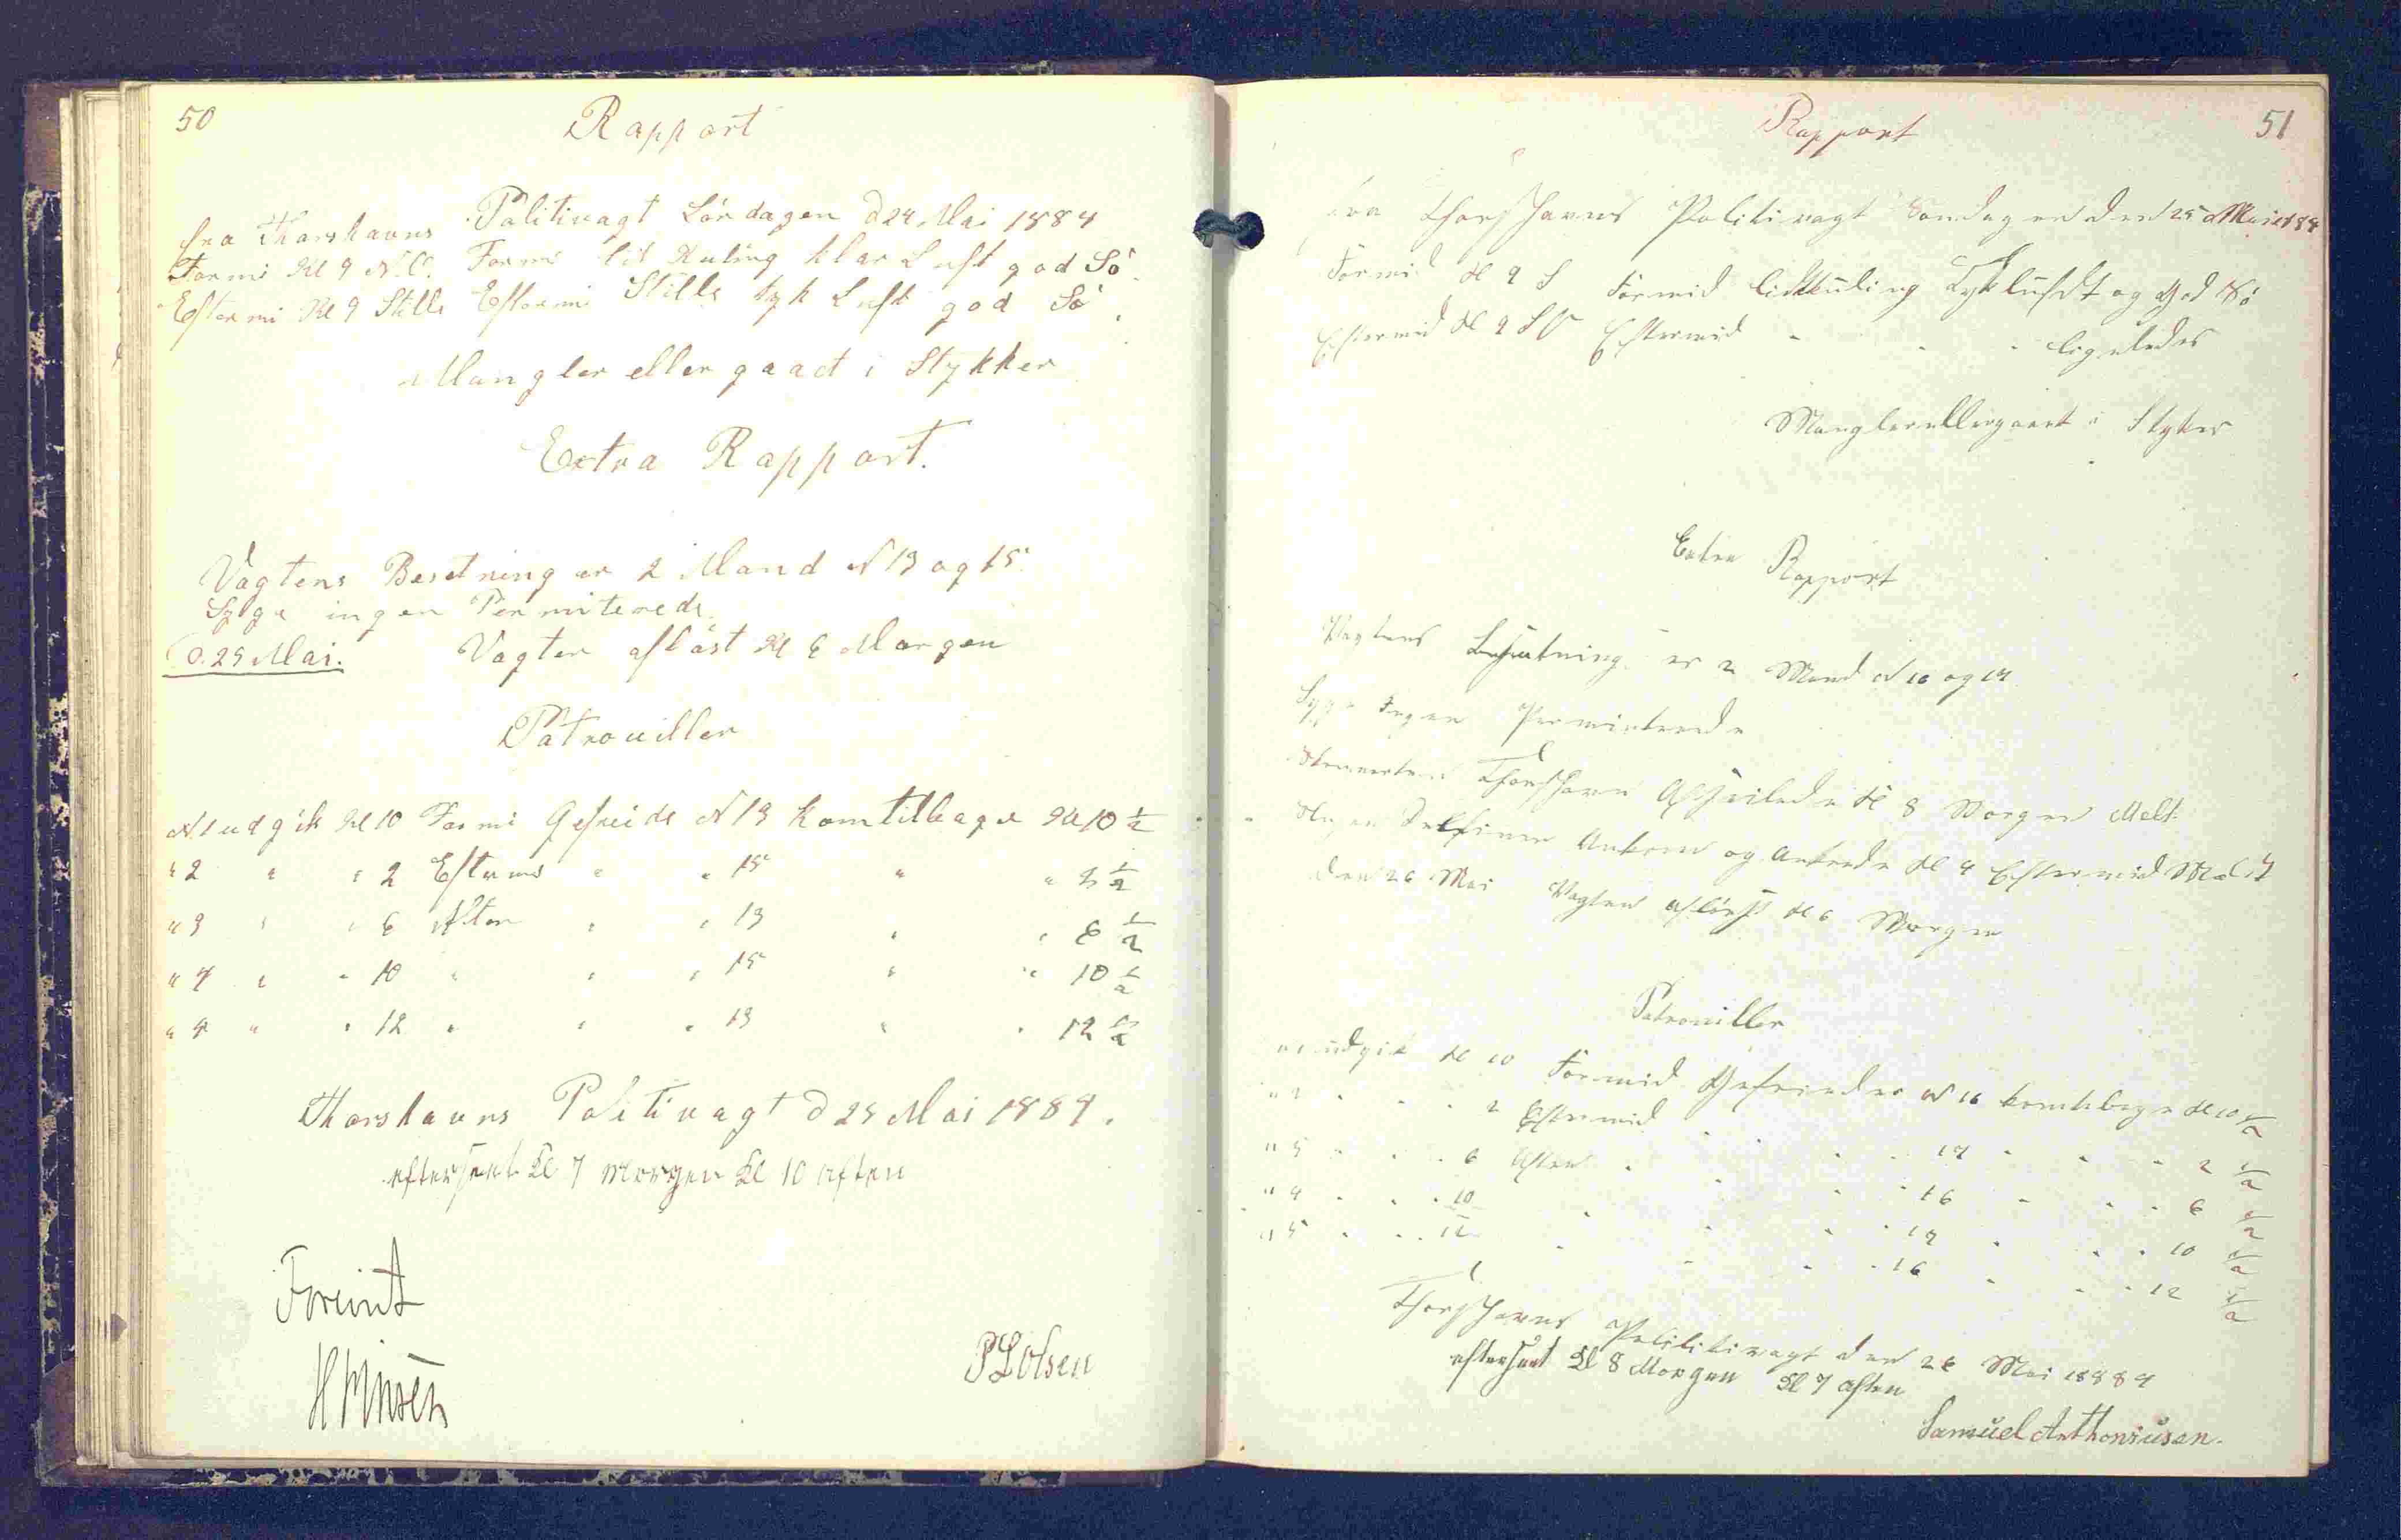 50
Rapport
fra Thorshavns Politivagt Lördagen d 24 Mai 1884
Formi Kl 9 N.O. Formi lit Kuling klar Luft god Sö
Eftermi Kl 9 Stille Eftermi Stille tyk Luft god Sö.
Mangler eller gaaet i Stykker
Extra Rapport.
Vagtens Besetning er 2 Mand N 13 og 15.
Syge ingen Permiterede
D. 25 Mai. Vagten aflöst Kl 6 Morgen
Patrouiller
N 1 udgik Kl 10 Formi Gefreide N 13 kom tilbage Kl 10 1/2
" 2 " " 2 Eftermi " " 15 " " 2 1/2
" 3 " " 6 Aften " " 13 " " 6 1/2
" 4 " " 10 " " " 15 " " 10 1/2
" " " 12 " " " 13 " " 12 1/2
Thorshavns Politivagt d 25 Mai 1884.
efterseet Kl 7 Morgen Kl 10 Aften
Forevist
P L Olsen
51
Rapport
fra Thorshavns Politivagt Søndagen den 25 Mai 1884
Formid Kl 9 S Formid lidt kuling Tyk lufdt og God Sö
Eftermid Kl 9 SV Eftermid - - - ligeledes
Mangler eller gaaet i Styker
Extra Rapport
Vagtens Besætning er 2 Mand N 16 og 17
Syge Ingen Permiterede
Thorshavn Afseilede Kl 8 Morgen Melt.
Ankom og Ankrede Kl 4 Eftermid Melt
den 26 Mai Vagten aflöst Kl 6 Morgen
Patrouiller
N 1 udgik Kl 10 Formid Gefreider N 16 kom tilbage Kl 10 1/2
" 2 - - - 2 Eftermid - - - 17 - - - 2 1/2
" 3 - - - 6 Aften - - - 16 - - - 6 1/2
" 4 - - - 10 - - - 17 - - - 10 1/2
" 5 - - - 12 - - - 16 - - - 12 1/2
Thorshavns Politivagt den 26 Mai 18884
efterseet Kl 8 Morgen Kl 7 Aften
Samuel Anthoniusen.